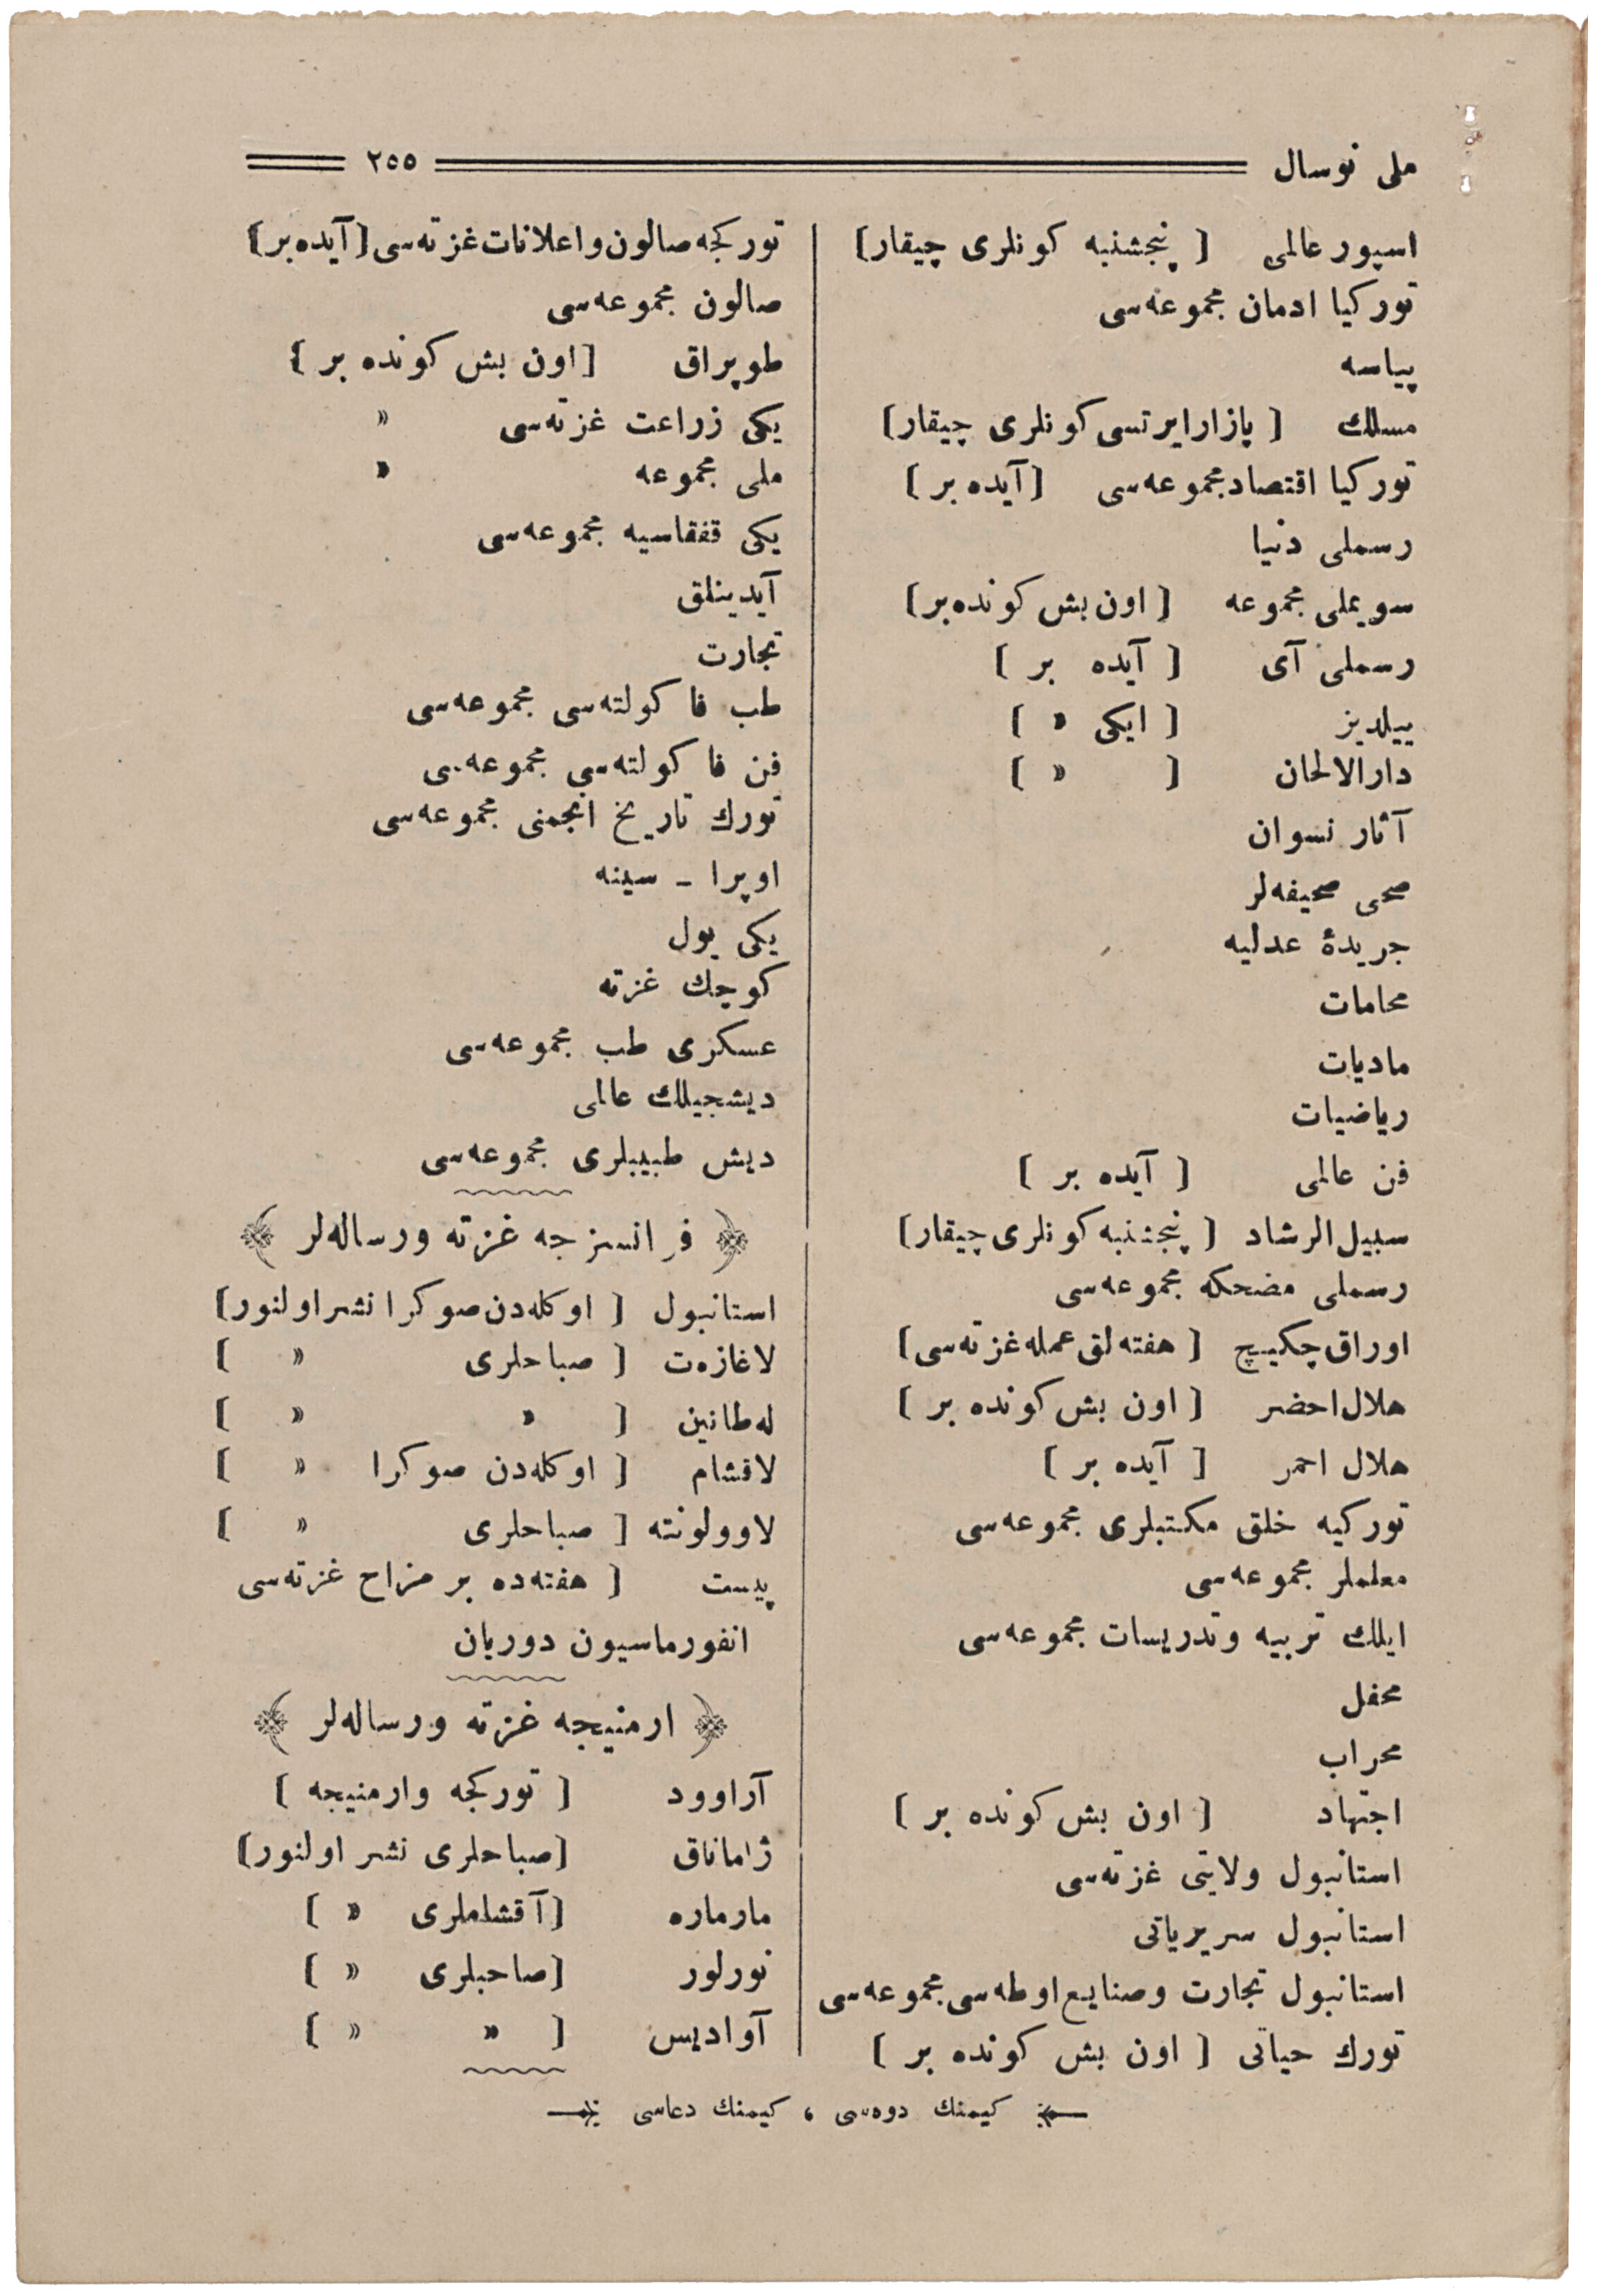 ملی نوسال ٢٥٥
اسپور عالمی [ پنجشنبه كونلری چیقار]
توركیا ادمان مجموعه‌سی
پیاسه
مسلك [ پازار ایرتسی كونلری چیقار]
توركیا اقتصاد مجموعه‌سی [آیده بر ]
رسملی دنیا
سویملی مجموعه [ اون بش كونده بر]
رسملی آی [ آیده بر ]
ییلدیز [ ایكی » ]
دارالالحان [ » ]
آثار نسوان
صحی صحیفه‌لر
جریدهٔ عدلیه
محامات
مادیات
ریاضیات
فن عالمی [ آیده بر ]
سبیل الرشاد [ پنجشنبه كونلری چیقار]
رسملی مضحكه مجموعه‌سی
اوراق چكیچ [ هفته‌لق عمله غزته‌سی]
هلال اخضر [ اون بش كونده بر ]
هلال احمر [ آیده بر ]
توركیه خلق مكتبلری مجموعه‌سی
معلملر مجموعه‌سی
ایلك تربیه و تدریسات مجموعه‌سی
محفل
محراب
اجتهاد [ اون بش كونده بر ]
استانبول ولایتی غزته‌سی
استانبول سریریاتی
استانبول تجارت و صنایع اوطه‌سی مجموعه‌سی
تورك حیاتی [ اون بش كونده بر ]
توركجه صالون و اعلانات غزته‌سی [آیده بر]
صالون مجموعه‌سی
طوپراق [اون بش كونده بر ]
یكی زراعت غزته‌سی »
ملی مجموعه »
یكی قفقاسیه مجموعه‌سی
آیدینلق
تجارت
طب فاكولته‌سی مجموعه‌سی
فن فاكولته‌سی مجموعه‌سی
تورك تاریخ انجمنی مجموعه‌سی
اوپرا ـ سینه
یكی یول
كوچك غزته
عسكری طب مجموعه‌سی
دیشجیلك عالمی
دیش طبیبلری مجموعه‌سی
﴿ فرانسزجه غزته و رساله‌لر ﴾
استانبول [ اوكله‌دن صوكرا نشر اولنور]
لاغازه‌ت [ صباحلری » ]
له‌طانین [ » » ]
لاقشام [ اوكله‌دن صوكرا » ]
لاوولونته [ صباحلری » ]
پیست [ هفته‌ده بر مزاح غزته‌سی
انفورماسیون دوریان
﴿ ارمنیجه غزته و رساله‌لر ﴾
آراوود [ توركجه وارمنیجه ]
ژاماناق [صباحلری نشر اولنور]
مارماره [آقشاملری » ]
نورلور [صاحبلری » ]
آوادیس [ » » ]
كیمنك دوه‌سی ، كیمنك دعاسی